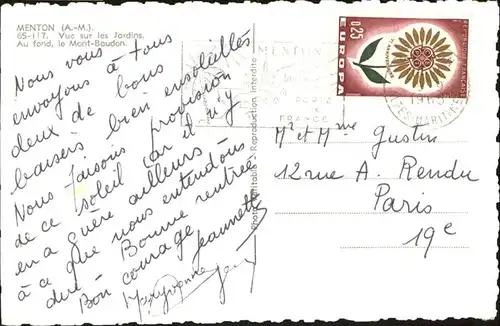 MENTON (A.-M.).
65-117. Vue sur les Jardins.
Au fond, le Mont-Baudon.
Nous vous
envoyons à tous
deux de bons
baisers bien ensoleillés
Nous faisons provision
de ce soleil car il n'y
en a guère ailleurs
à ce que nous entendons
dire. Bonne rentrée
Bon courage Jeannette
Reproduction Interdite
MENTON
FRANCE
0,25
EUROPA
REPUBLIQUE FRANÇAISE
Mr et Mme Gustin
12 rue A. Rendu
Paris
19e